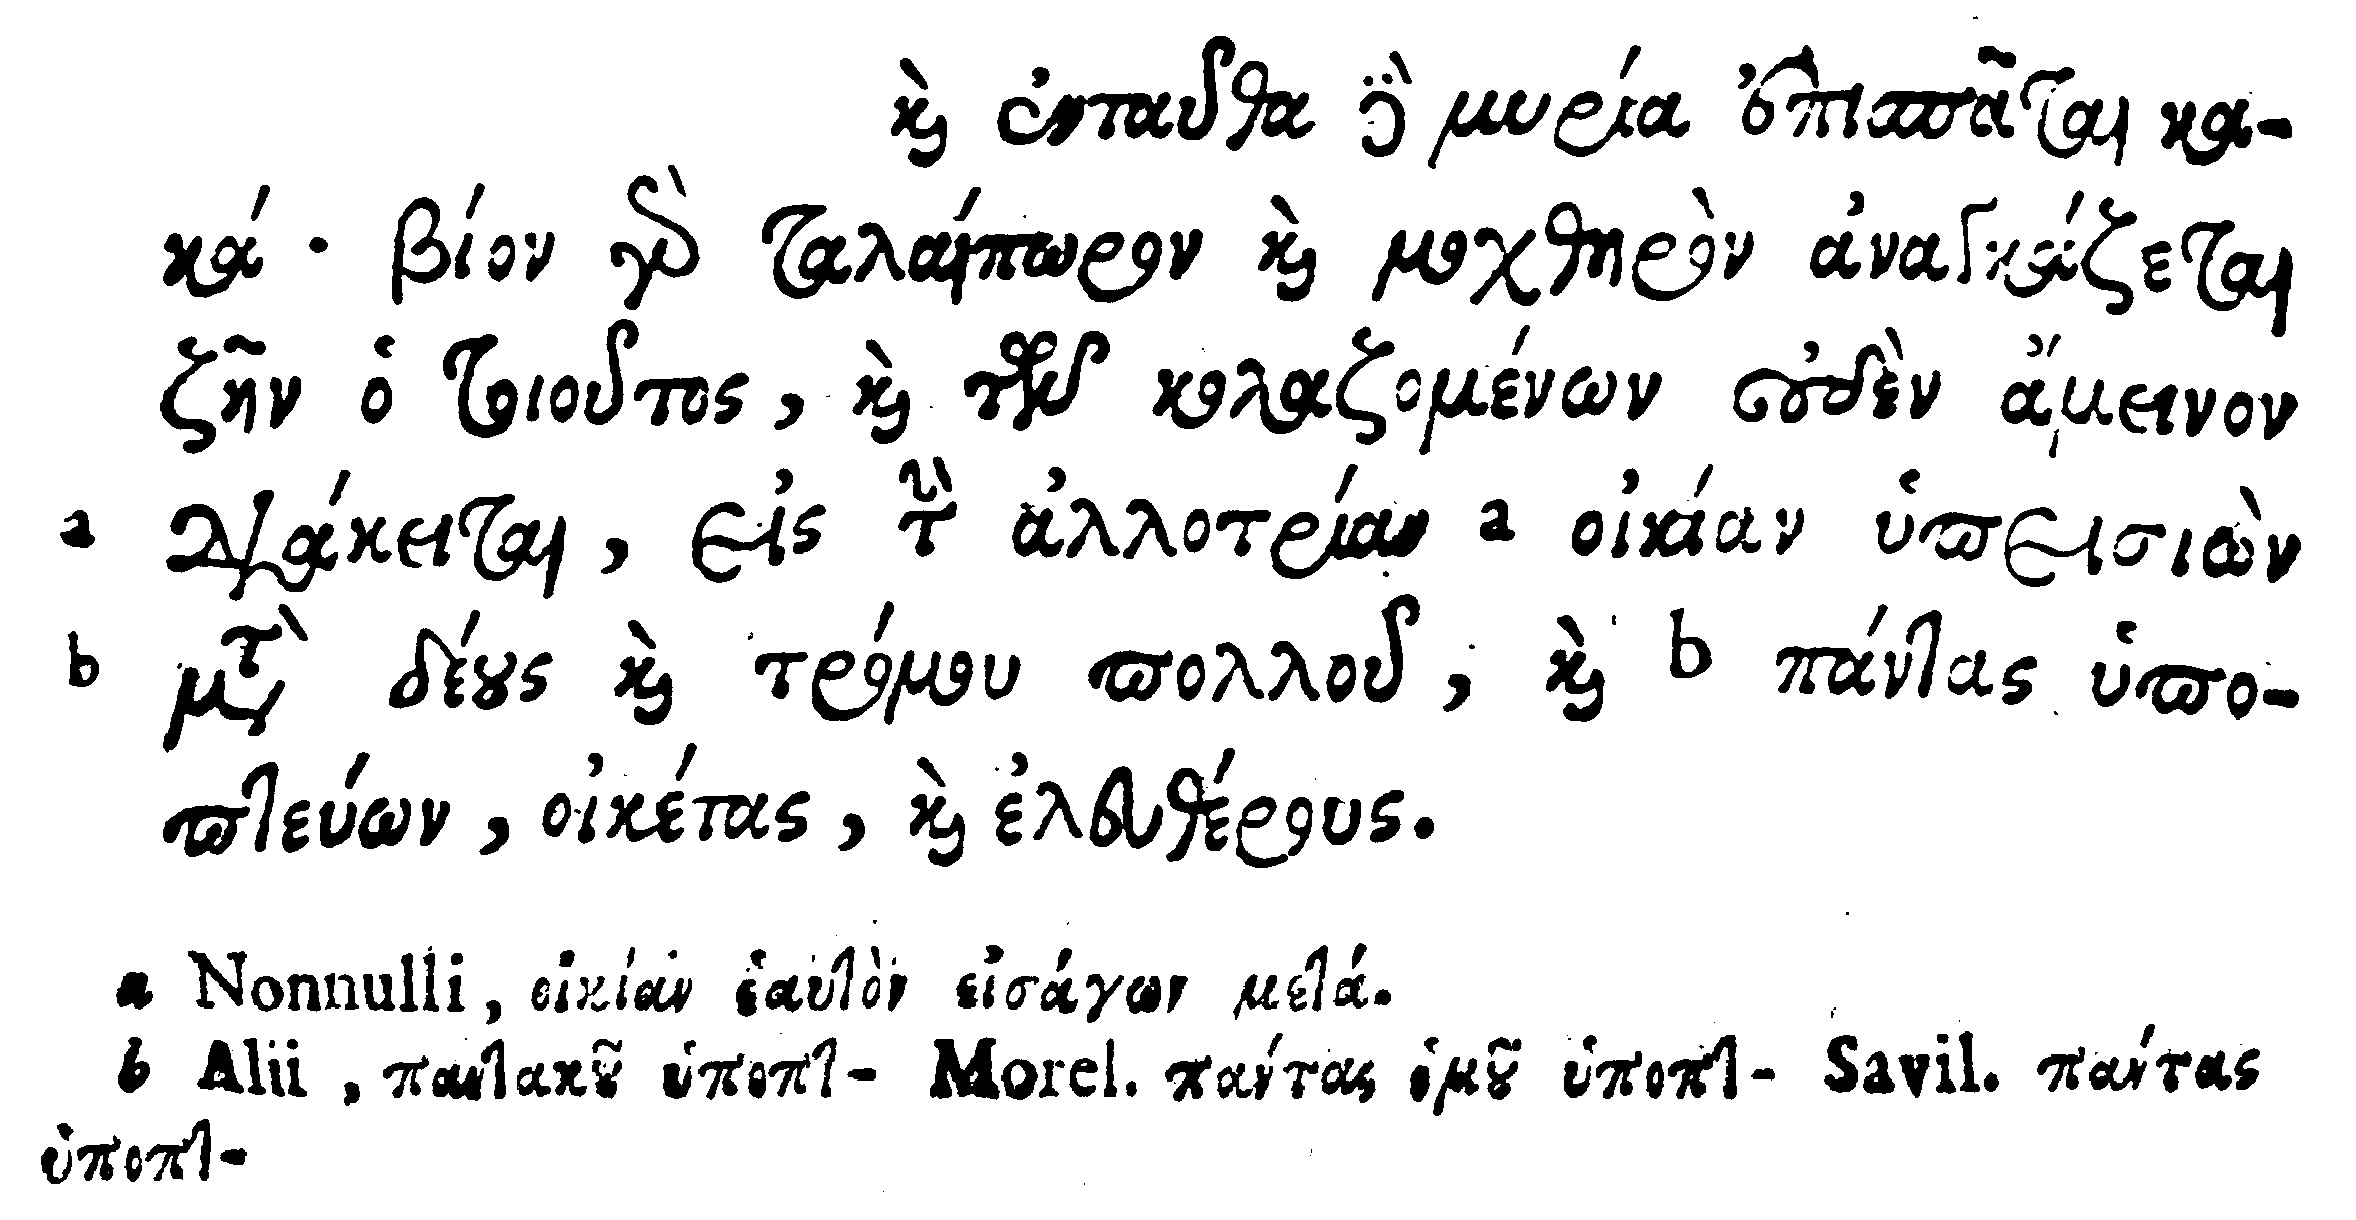 καὶ ἐνταῦθα δὲ μυρία ἐπισπᾶται κα-
κά · βίον γὰρ ταλαίπωρον καὶ μοχθηρὸν ἀναγκάζεται
ζῆν ὁ τοιοῦτος, καὶ τῶν κολαζομένων οὐδὲν ἄμεινον
a διάκειται, εἰς τὴν ἀλλοτρίαν a οἰκίαν ὑπεισιὼν
b μετὰ δέους καὶ τρόμου πολλοῦ, καὶ b πάντας ὑπο-
πτεύων, οἰκέτας, καὶ ἐλευθέρους.
a Nonnulli, οἰκίαν ἑαυτὸν εἰσάγων μετά.
b Alii, πανταχοῦ ὑποπτ- Morel. πάντας ὁμοῦ ὑποπτ- Savil. πάντας
ὑποπτ-